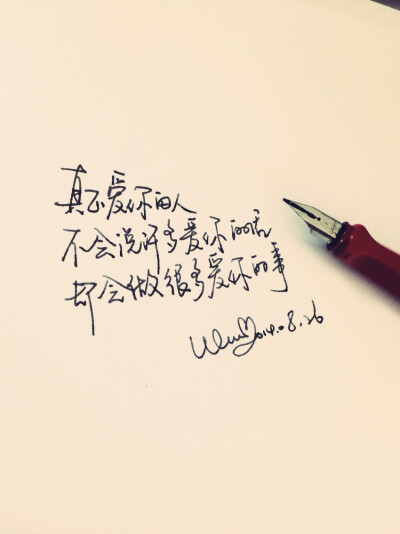 真正爱你的人
不会说许多爱你的话
却会做很多爱你的事
2014.08.26